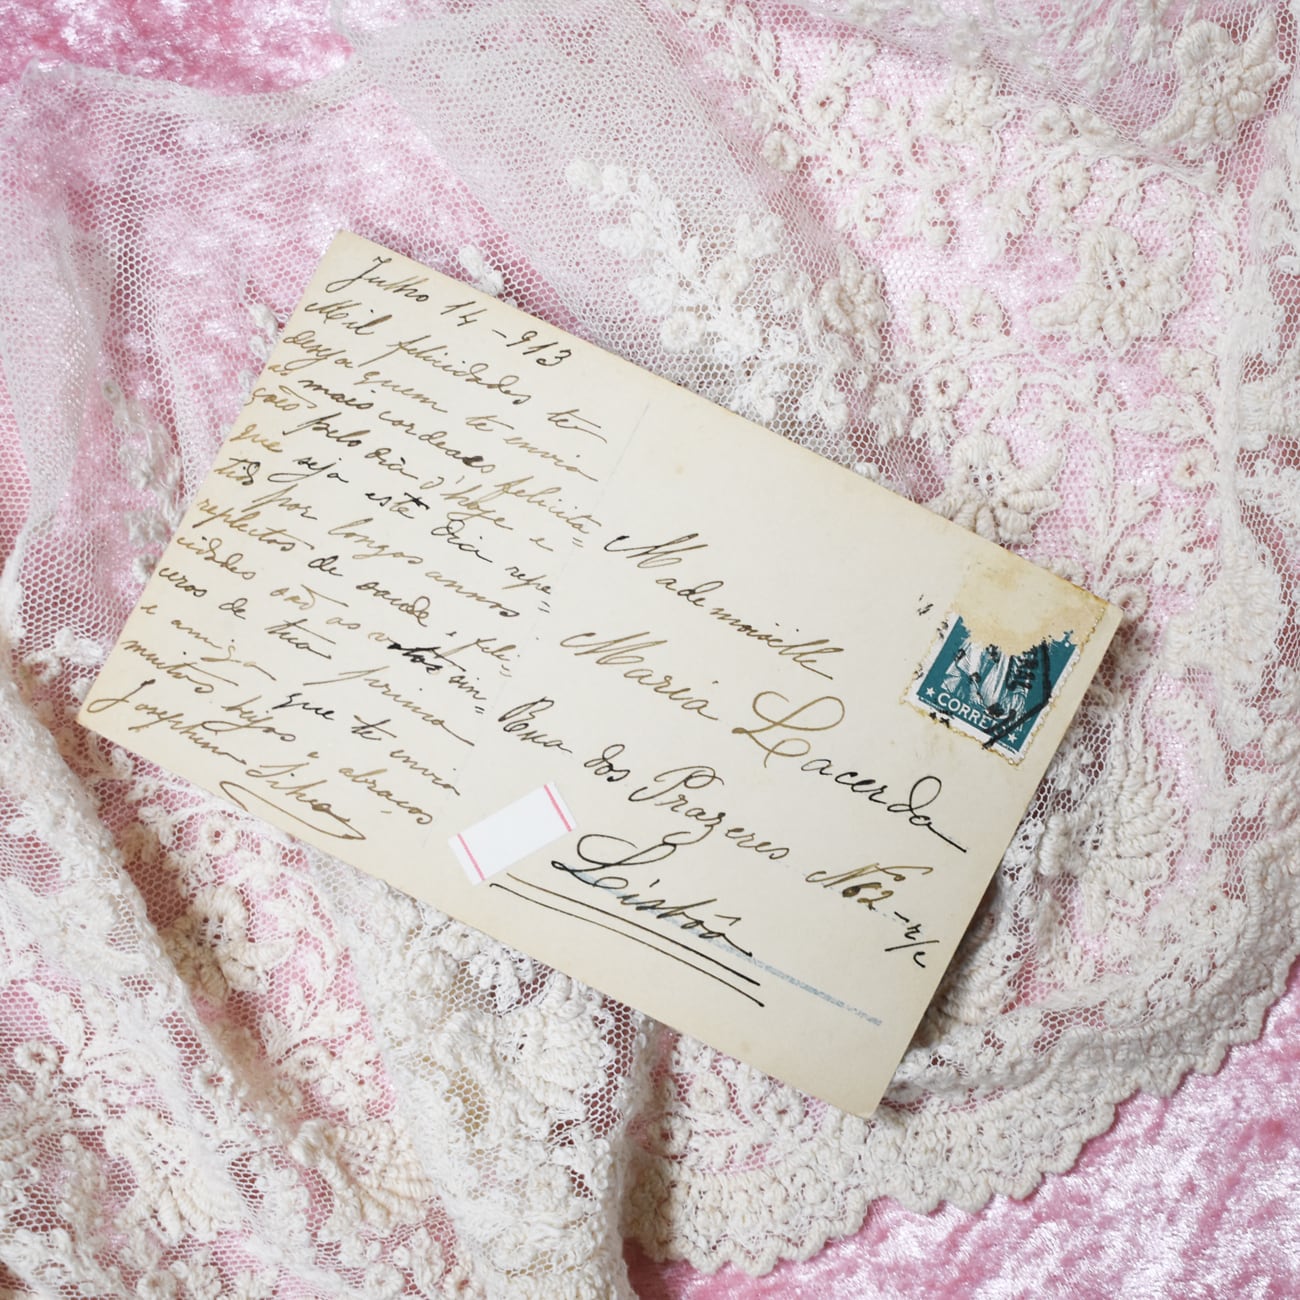 Julho 14 - 913
Mil felicidades te
deseja quem te envia
as mais cordeaes felicita=
ções pelo dia d'hoje e
que seja este dia repe=
tido por longos annos
replectos de saude e feli=
cidades são os votos sin=
ceros de tua prima
e amiga que te envia
muitos bejos e abraços
Josephina Silva
Mademoiselle
Maria Lacerda
Rua dos Prazeres Nº 62 - r/c
Lisbôa
CORREIO